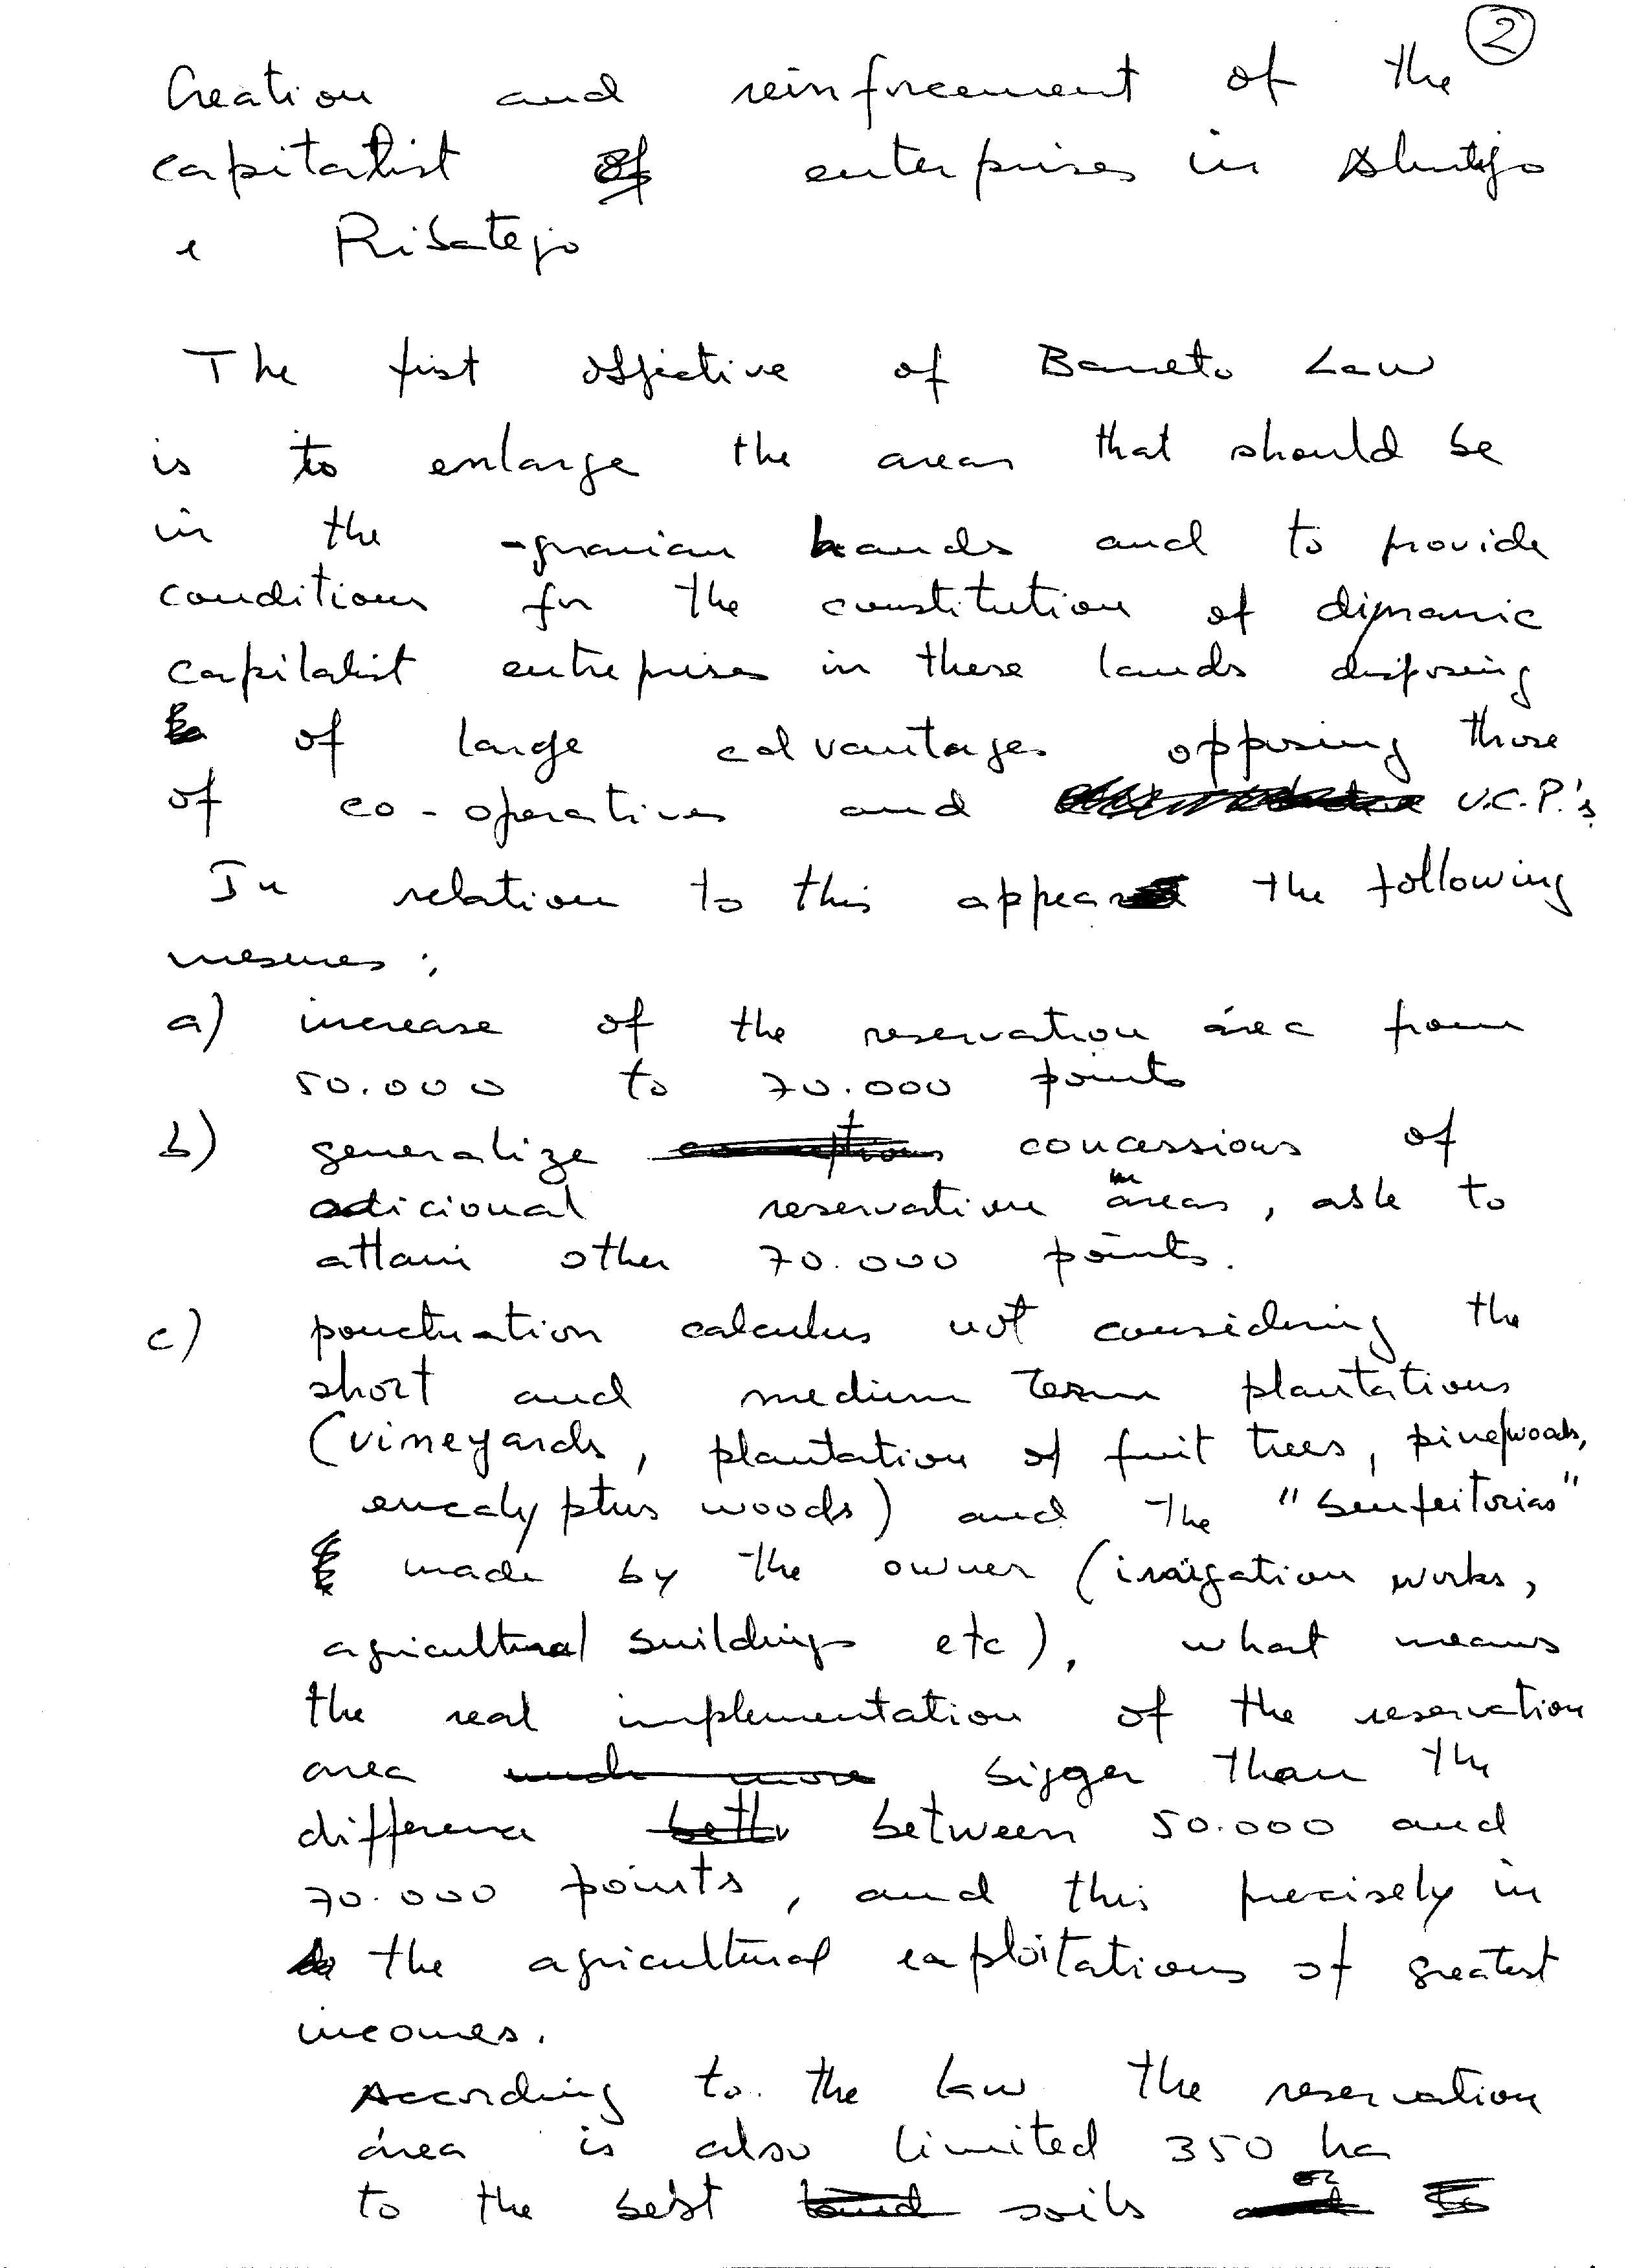 2
Creation and reinforcement of the
capitalist enterprises in Alentejo
e Ribatejo
The first objective of Barreto Law
is to enlarge the areas that should be
in the agrarian hands and to provide
conditions for the constitution of dinamic
capitalist entreprises in these lands disposing
of large advantages opposing those
of co-operatives and U.C.P.'s
In relation to this appear the following
mesures:
a) increase of the reservation área from
50.000 to 70.000 points
b) generalize concessions of
adicional reservation in áreas, able to
attain other 70.000 points.
c) ponctuation calculus not considering the
short and medium term plantations
(vineyards, plantation of fruit trees, pinewoods,
eucalyptus woods) and the "benfeitorias"
made by the owner (irrigation works,
agricultural buildings etc), what means
the real implementation of the reservation
area bigger than the
difference between 50.000 and
70.000 points, and this precisely in
the agricultural exploitations of greatest
incomes.
According to the law the reservation
área is also limited 350 ha
to the best soils or